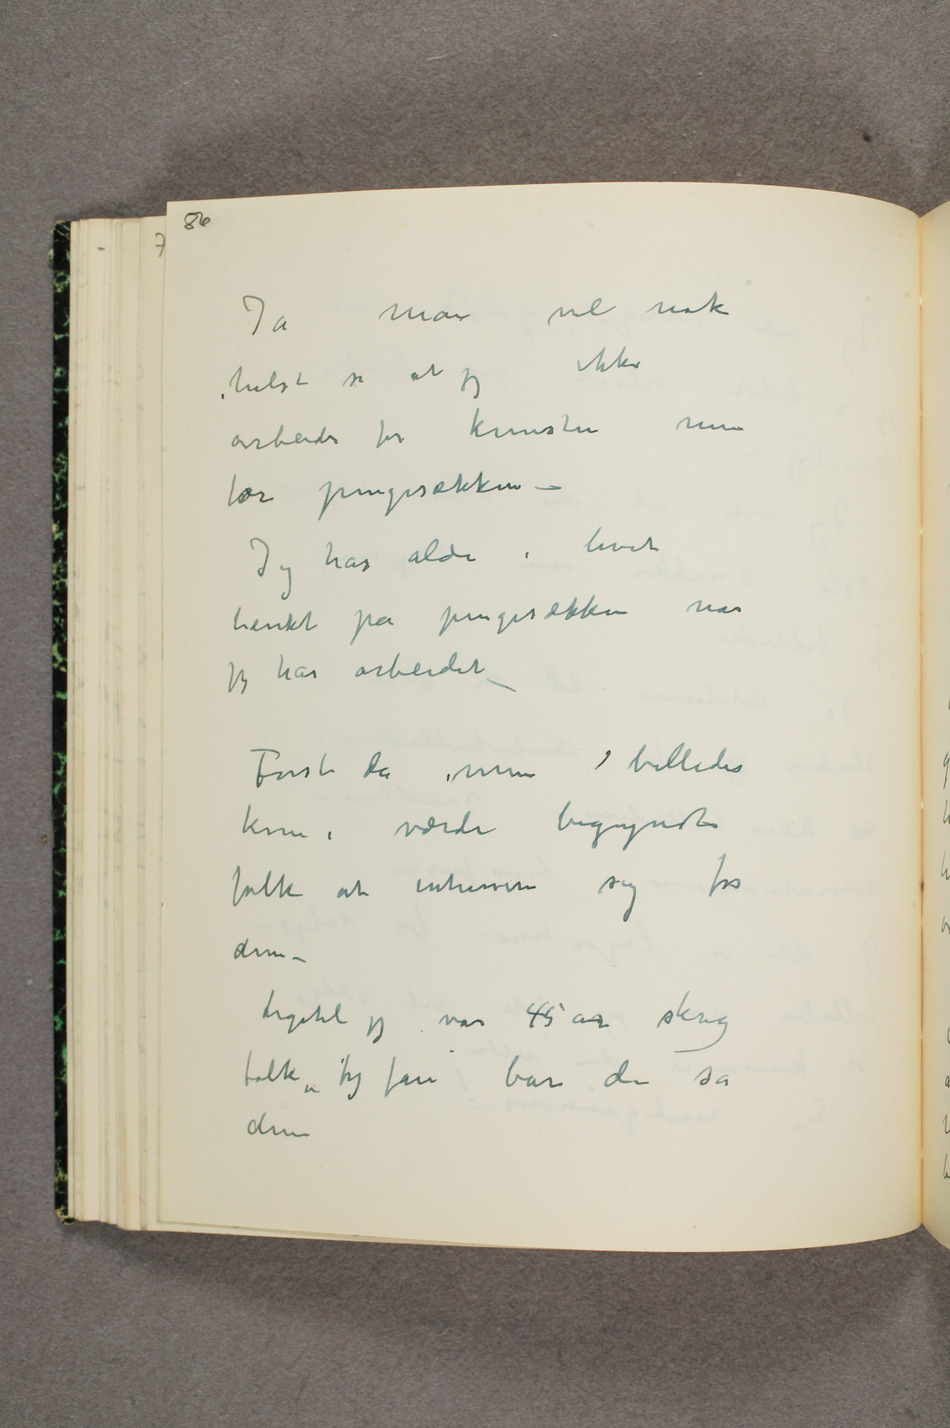 86
Ja man vil nok
helst si at jeg ikke
arbeider for kunsten men
for pengesækken –
Jeg har aldri i livet
tænkt på pengesækken når
jeg har arbeidet –
Først da mine billeder
kom i værdi begynndte
folk at interessere sig for
dem –
Ligetil jeg var 45 år skreg
folk „fy fan bare de så
dem